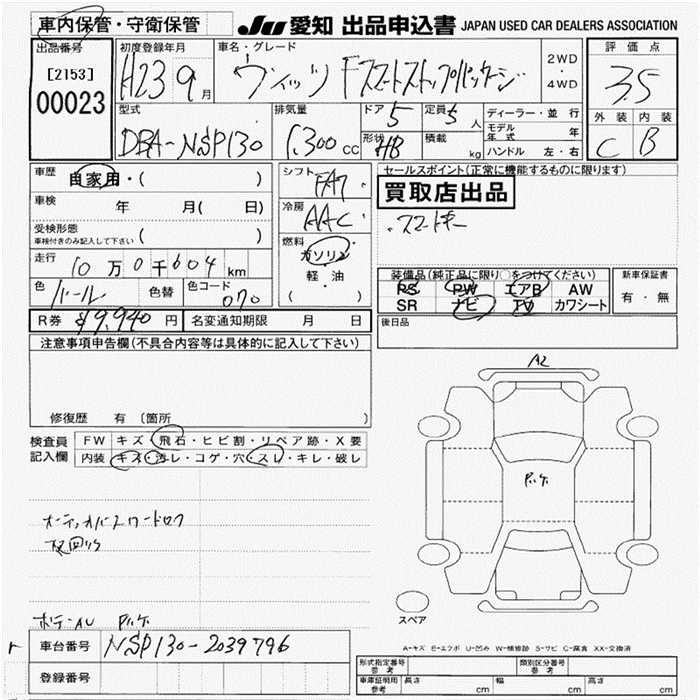 車内保管・守衛保管
JU 愛知 出品申込書 JAPAN USED CAR DEALERS ASSOCIATION
出品番号 初度登録年月 車名・グレード 2WD ・ 4WD 評価点
[2153] H23 9月 ヴィッツ Fスマートストップパッケージ 3.5
00023
型式 排気量 ドア 5 定員 5人 ディーラー・並行 外装 内装
DBA-NSP130 1,300 CC 形状 HB 積載 kg モデル年式 年 C B
ハンドル 左・右
車歴 自家用・( ) シフト FA7 セールスポイント(正常に機能するものに限ります)
買取店出品
車検 年 月( 日) 冷房 AAC ・スマートキー
受検形態 ( )
車検付きのみ記入して下さい
燃料 ガソリン
走行 10万0千604km 軽・油
( )
装備品(純正品に限り○をつけてください) 新車保証書
色 パール 色替 色コード 070 PS PW エアB AW 有・無
SR ナビ TV カワシート
R券 ¥9,940円 名変通知期限 月 日 後日品
注意事項申告欄(不具合内容等は具体的に記入して下さい)
A2
修復歴 有 〔箇所 〕
検査員 FW キズ・飛石・ヒビ割・リペア跡・X要
記入欄 内装 キズ・汚レ・コゲ・穴・スレ・キレ・破レ
スペア
車台番号 NSP130-2039796
登録番号
A-キズ E-エクボ U-凹み W-補修跡 S-サビ C-腐食 XX-交換済
形式指定番号 参考 類別区分番号 参考
車庫証明用 参考 長さ cm 幅 cm 高さ cm